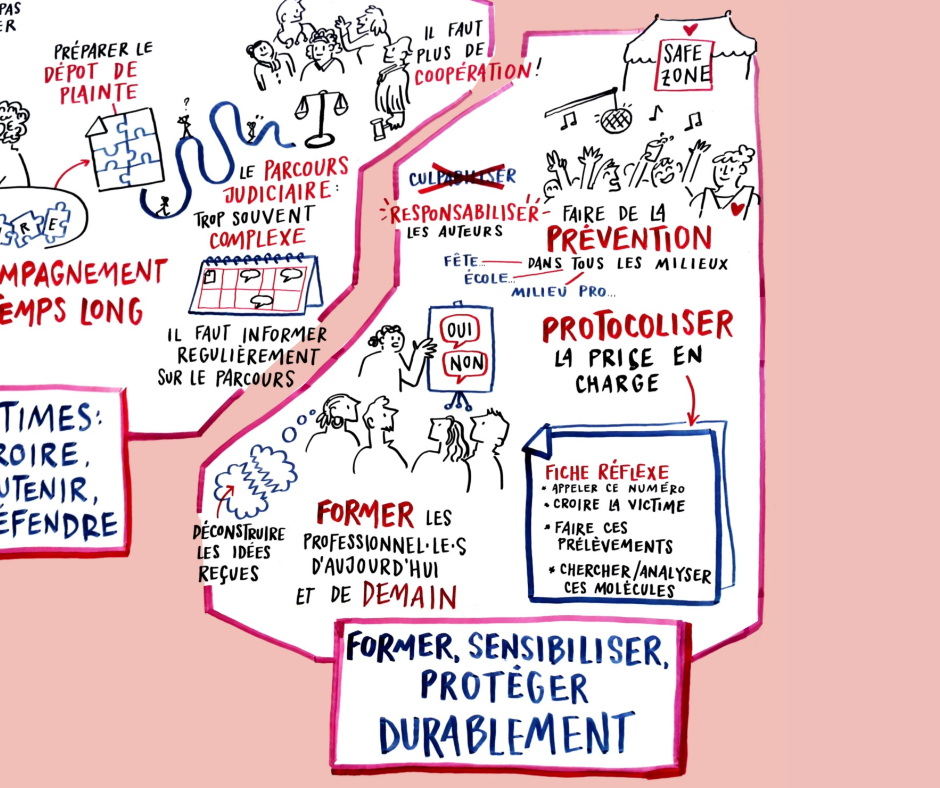 PAS
ER
PRÉPARER LE
DÉPOT DE
PLAINTE
?
IL FAUT
PLUS DE
COOPÉRATION!
LE PARCOURS
JUDICIAIRE:
TROP SOUVENT
COMPLEXE
IRE
MPAGNEMENT
EMPS LONG
IL FAUT INFORMER
REGULIÈREMENT
SUR LE PARCOURS
TIMES:
ROIRE,
UTENIR,
ÉFENDRE
SAFE
ZONE
CULPABILISER
RESPONSABILISER
LES AUTEURS
FAIRE DE LA
PRÉVENTION
DANS TOUS LES MILIEUX
FÊTE...
ÉCOLE...
MILIEU PRO...
OUI
NON
PROTOCOLISER
LA PRISE EN
CHARGE
FICHE RÉFLEXE
• APPELER CE NUMÉRO
• CROIRE LA VICTIME
• FAIRE CES
PRÉLÈVEMENTS
• CHERCHER/ANALYSER
CES MOLÉCULES
DÉCONSTRUIRE
LES IDÉES
REÇUES
FORMER LES
PROFESSIONNEL·LE·S
D'AUJOURD'HUI
ET DE DEMAIN
FORMER, SENSIBILISER,
PROTÉGER
DURABLEMENT